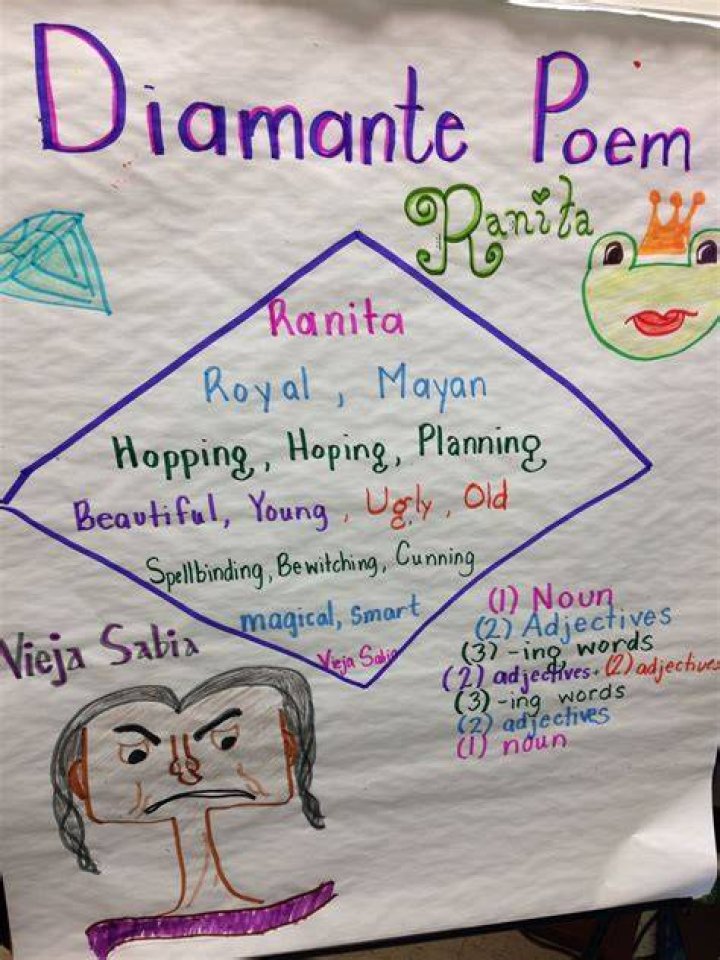 Diamante Poem
Ranita
Ranita
Royal, Mayan
Hopping, Hoping, Planning
Beautiful, Young, Ugly, Old
Spellbinding, Bewitching, Cunning
magical, Smart
Vieja Sabia
Vieja Sabia
(1) Noun
(2) Adjectives
(3) -ing words
(2) adjectives, (2) adjectives
(3) -ing words
(2) adjectives
(1) noun